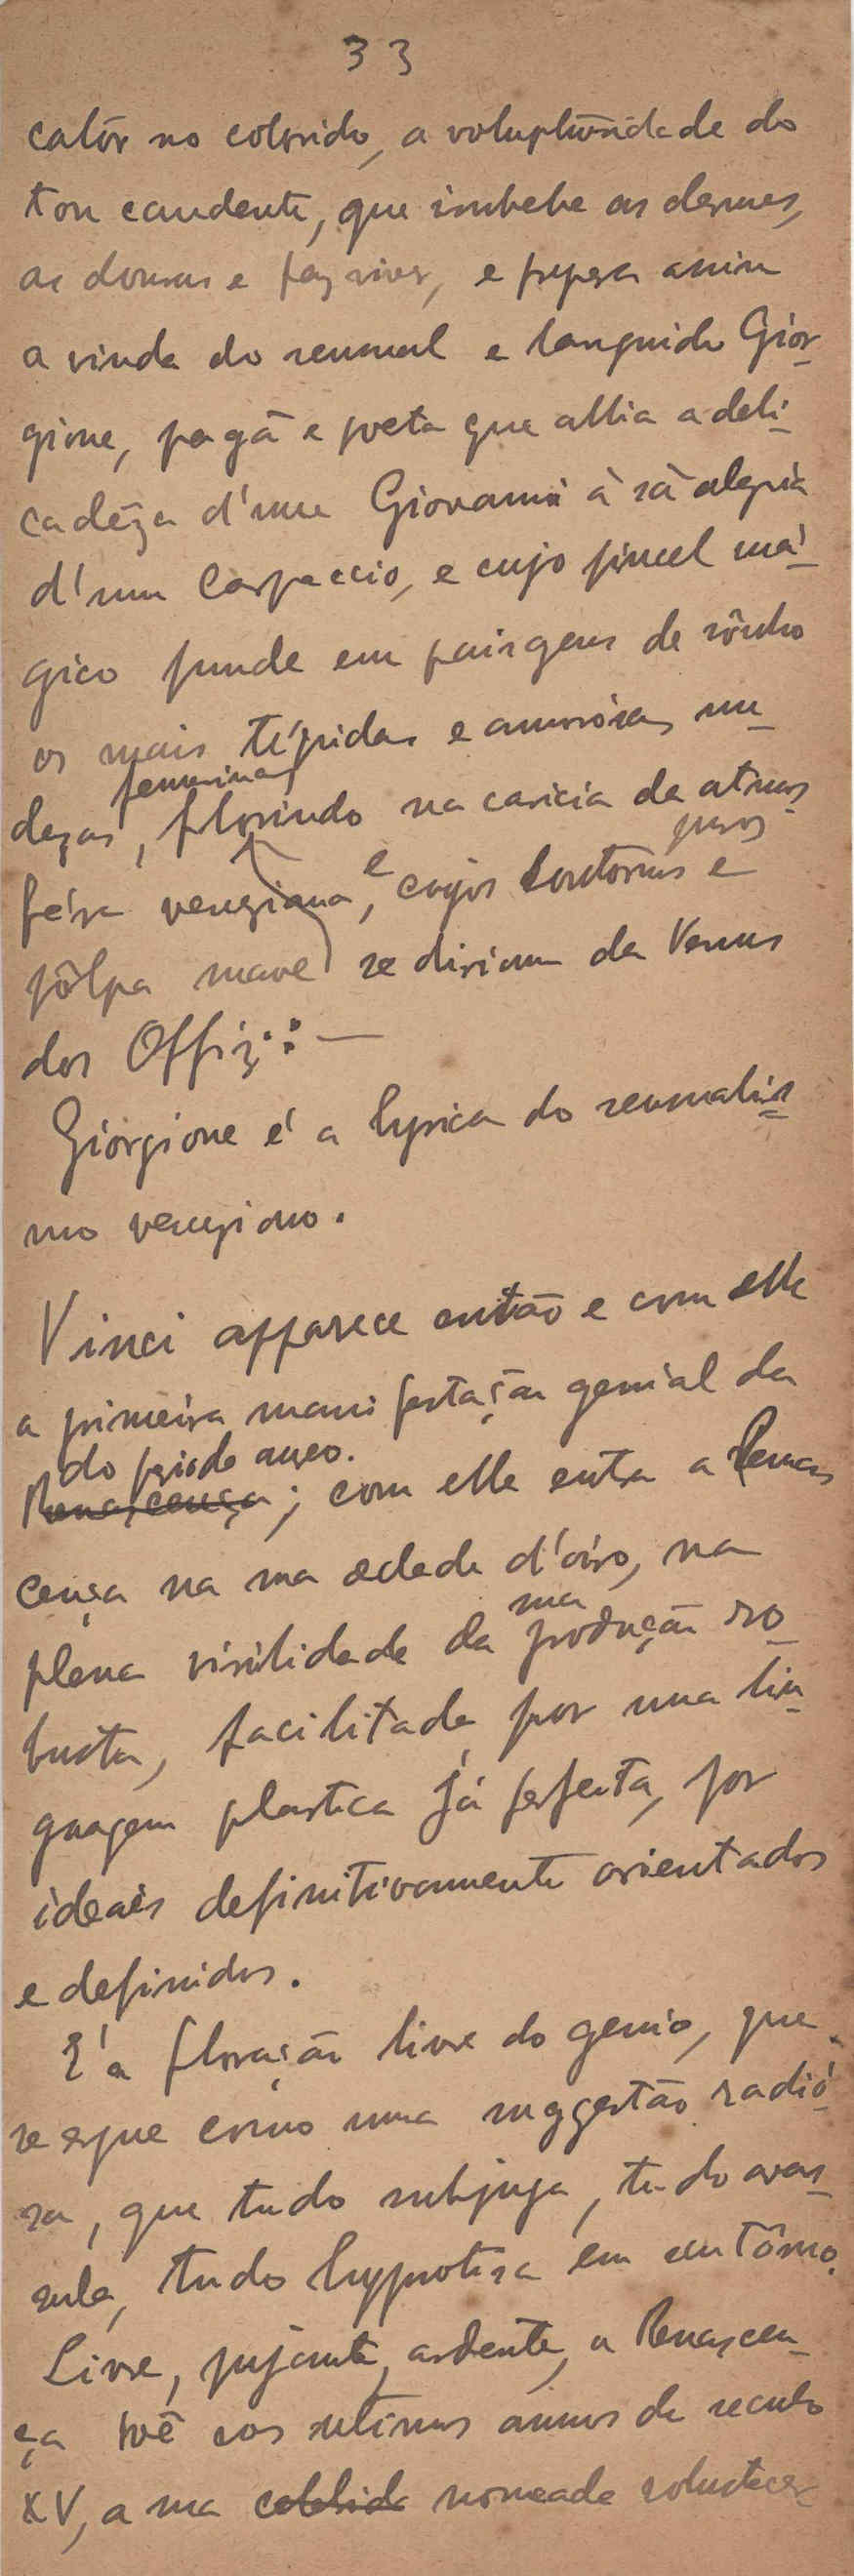 33
calôr no colorido, a voluptuosidade do
ton candente, que imbebe as
as e faz viver, e prepara assim
a vinda do sensual e languido Giór-
gione, pagã e poeta que allia a deli-
cadêza d'um Giovanni à sã alegria
d'um Carpaccio, e cujo pincel má-
gico funde em paisagens de sônho
as mais tépidas e amorósas nu-
femininas
dezas, florindo na caricia da atmos-
puros
féra veneziana, e cujos contornos e
pôlpa suave se diriam da Venus
dos Offizi: —
Giórgione é a lyrica do sensualis-
mo veneziano.
Vinci apparece então e com elle
a primeira manifestação genial da
do periodo aureo.
Renascença; com elle entra a Renas
cença na sua edade d'oiro, na
sua
plena virilidade da produção ro-
busta, facilitada por uma lin-
guagem plastica já perfeita, por
ideaes definitivamente orientados
e definidos.
E' a floração livre do genio, que
se ergue como uma suggestão radió-
sa, que tudo subjuga, tudo avas-
sala, tudo hypnotisa em seu tôrno.
Livre, pujante, ardente, a Renascen-
ça vê nos ultimos annos do seculo
XV, a sua colorida nomeada robustecer